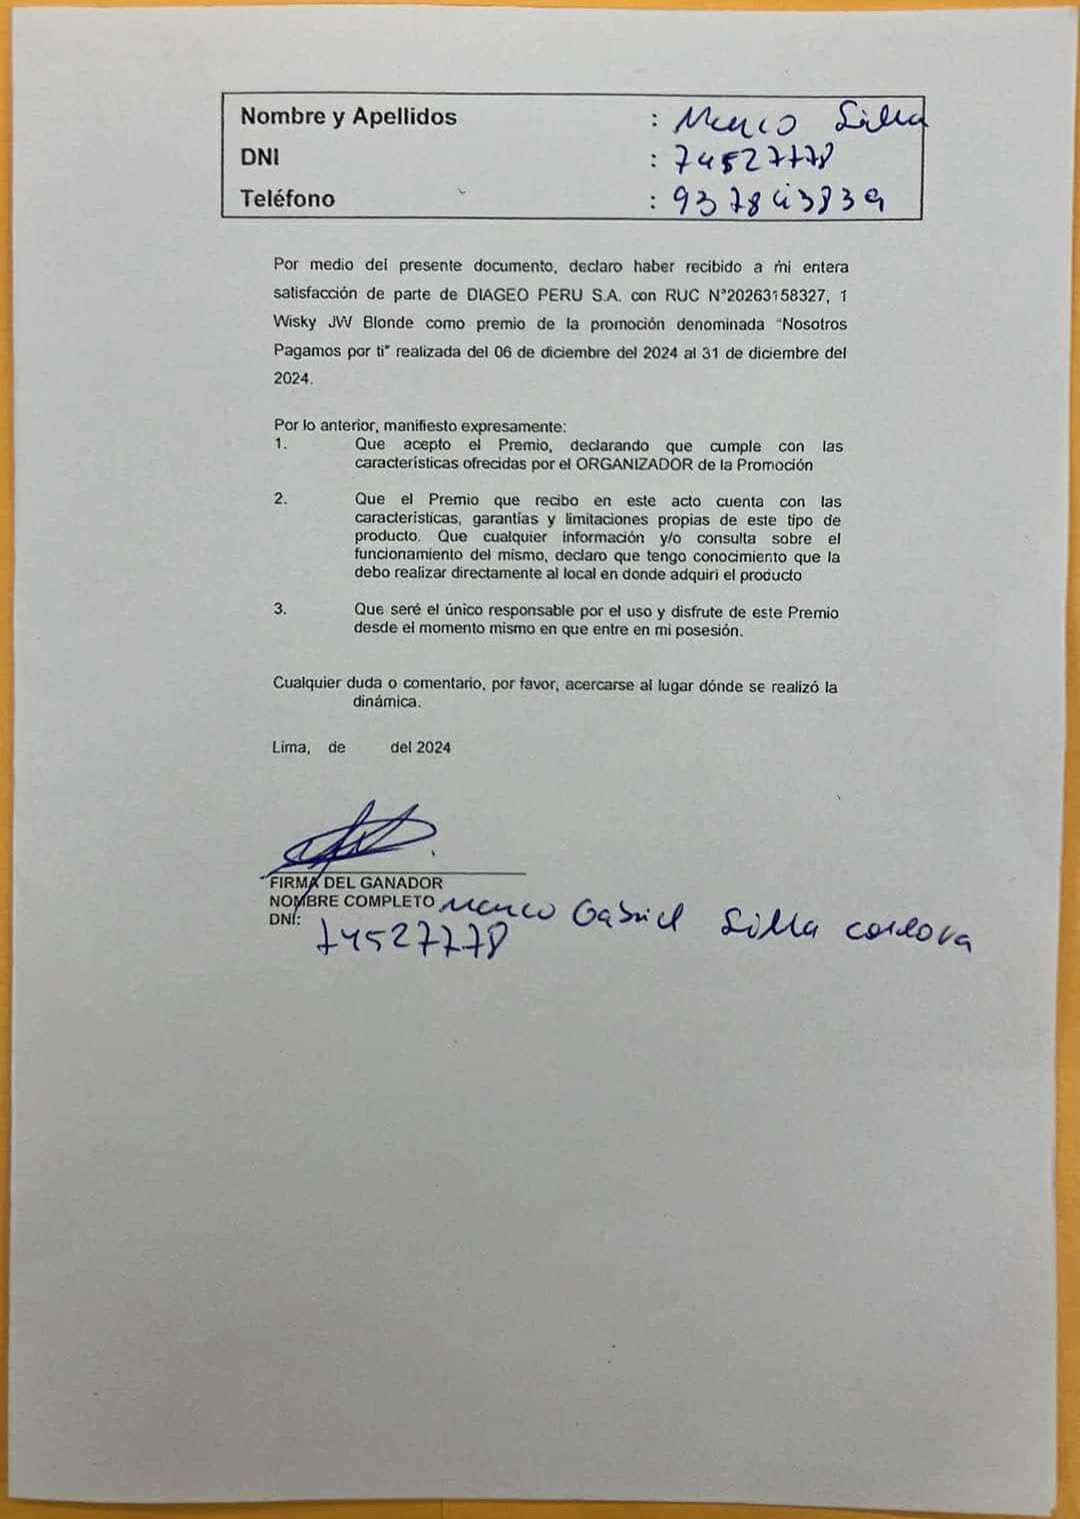 Nombre y Apellidos : Marco Silla
DNI : 74527778
Teléfono : 937843839
Por medio del presente documento, declaro haber recibido a mi entera
satisfacción de parte de DIAGEO PERU S.A. con RUC N°20263158327, 1
Wisky JW Blonde como premio de la promoción denominada "Nosotros
Pagamos por ti" realizada del 06 de diciembre del 2024 al 31 de diciembre del
2024.
Por lo anterior, manifiesto expresamente:
1. Que acepto el Premio, declarando que cumple con las
características ofrecidas por el ORGANIZADOR de la Promoción
2. Que el Premio que recibo en este acto cuenta con las
características, garantías y limitaciones propias de este tipo de
producto. Que cualquier información y/o consulta sobre el
funcionamiento del mismo, declaro que tengo conocimiento que la
debo realizar directamente al local en donde adquirí el producto
3. Que seré el único responsable por el uso y disfrute de este Premio
desde el momento mismo en que entre en mi posesión.
Cualquier duda o comentario, por favor, acercarse al lugar dónde se realizó la
dinámica.
Lima, de del 2024
FIRMA DEL GANADOR
NOMBRE COMPLETO Marco Gabriel Silla Cordova
DNI: 74527778